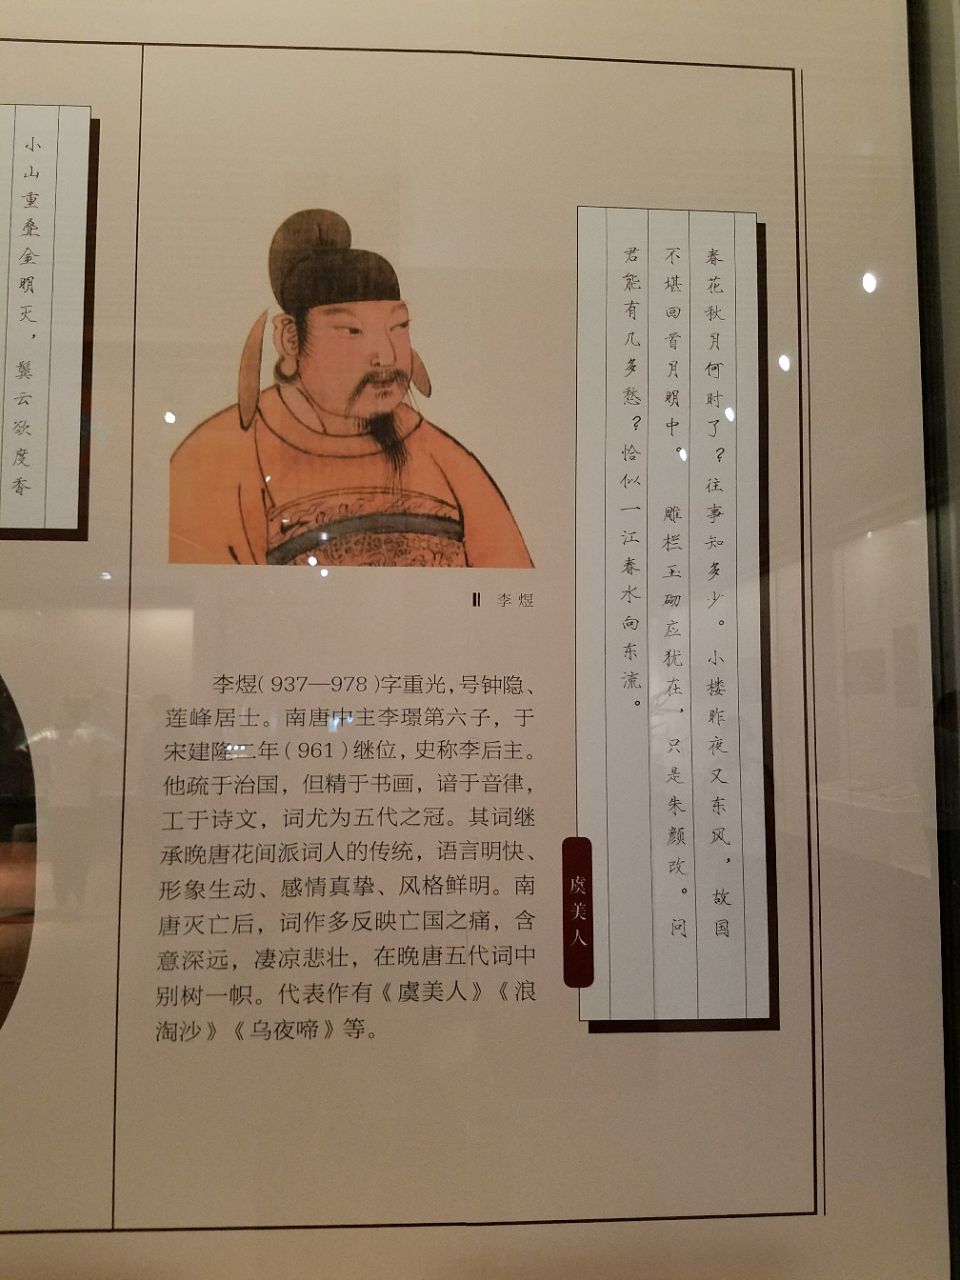 小山重叠金明灭，鬓云欲度香
李煜
李煜（937—978）字重光，号钟隐、
莲峰居士。南唐中主李璟第六子，于
宋建隆二年（961）继位，史称李后主。
他疏于治国，但精于书画，谙于音律，
工于诗文，词尤为五代之冠。其词继
承晚唐花间派词人的传统，语言明快、
形象生动、感情真挚、风格鲜明。南
唐灭亡后，词作多反映亡国之痛，含
意深远，凄凉悲壮，在晚唐五代词中
别树一帜。代表作有《虞美人》《浪
淘沙》《乌夜啼》等。
春花秋月何时了？往事知多少。小楼昨夜又东风，故国
不堪回首月明中。雕栏玉砌应犹在，只是朱颜改。问
君能有几多愁？恰似一江春水向东流。
虞美人